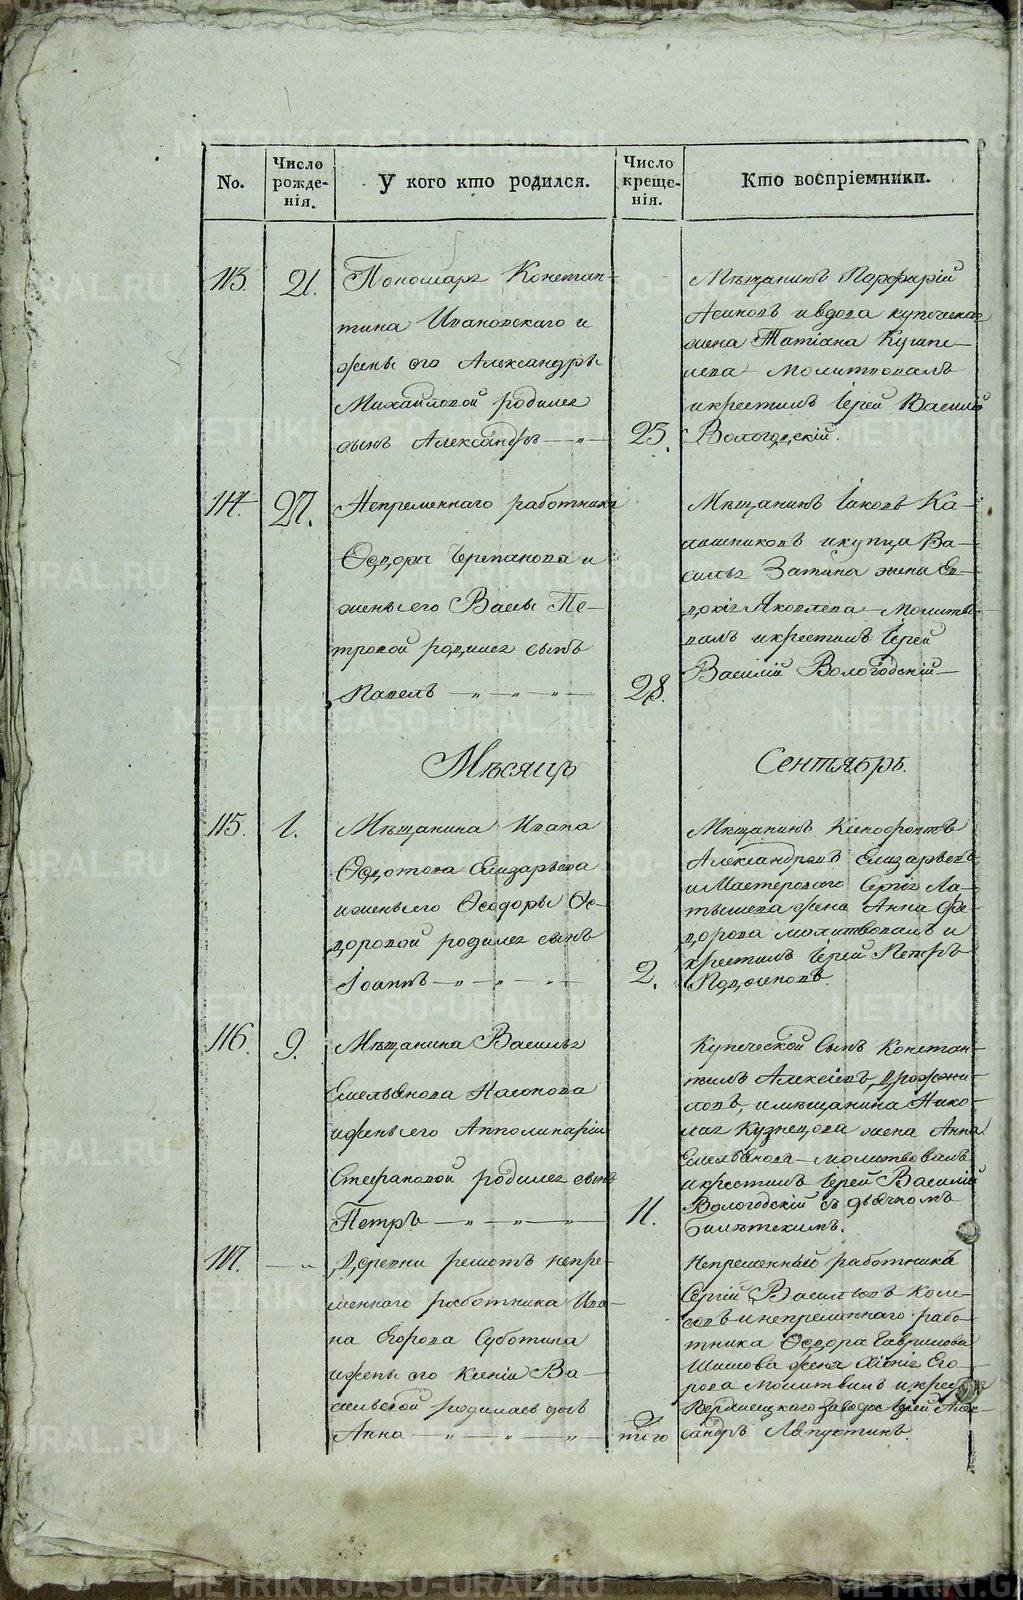 No.
Число рожде-нія.
У кого кто родился.
Число креще-нія.
Кто воспріемники.
113.
21.
Пономаря Констан-
тина Ивановскаго и
жены его Александры
Михайловой родился
сынъ Александръ
23.
Мѣщанинъ Порфирій
и вдова купеческая
жена Татіана
Молитвовалъ
и крестилъ Іерей Василій
Вологодскій.
114.
27.
Непременнаго работника
Ѳедора Черепанова и
жены его Вассы Пе-
тровой родился сынъ
Павелъ
28.
Мѣщанинъ Іаковъ Ка-
лашниковъ и купца Ва-
силья жена Ев-
докія Яковлева Молитво-
валъ и крестилъ Іерей
Василій Вологодскій
Мѣсяцъ
Сентябрь.
115.
1.
Мѣщанина Ивана
Ѳедотова Елизарьева
и жены его Ѳеодоры Ѳе-
доровой родился сынъ
Іоаннъ
2.
Мѣщанинъ Ксенофонтъ
Александровъ Елизарьевъ
и Мастероваго Сергія Ла-
тышева жена Анна Фе-
дорова молитвовалъ и
крестилъ Іерей Петръ
116.
9.
Мѣщанина Василья
Емельянова Насонова
и жены его Апполинаріи
Стефановой родился сынъ
Петръ
11.
Купеческой сынъ Констан-
тинъ Алексѣевъ Дрожжи-
ловъ, и мѣщанина Нико-
лая Кузнецова жена Анна
Емельянова молитвовалъ
и крестилъ Іерей Василій
Вологодскій съ дьячкомъ
117.
Деревни решотъ непре-
меннаго работника Ива-
на Егорова Суботина
и жены его Ксеніи Ва-
сильевой родилась дочь
Анна
того
Непременный работникъ
Сергій Васильевъ Коле-
совъ и непременнаго рабо-
тника Ѳедора Гаврилова
Шишова жена Ксенія Его-
рова Молитвилъ и крес
завода Іерей Алек-
сандръ Лапухтинъ.
METRIKI.GASO-URAL.RU